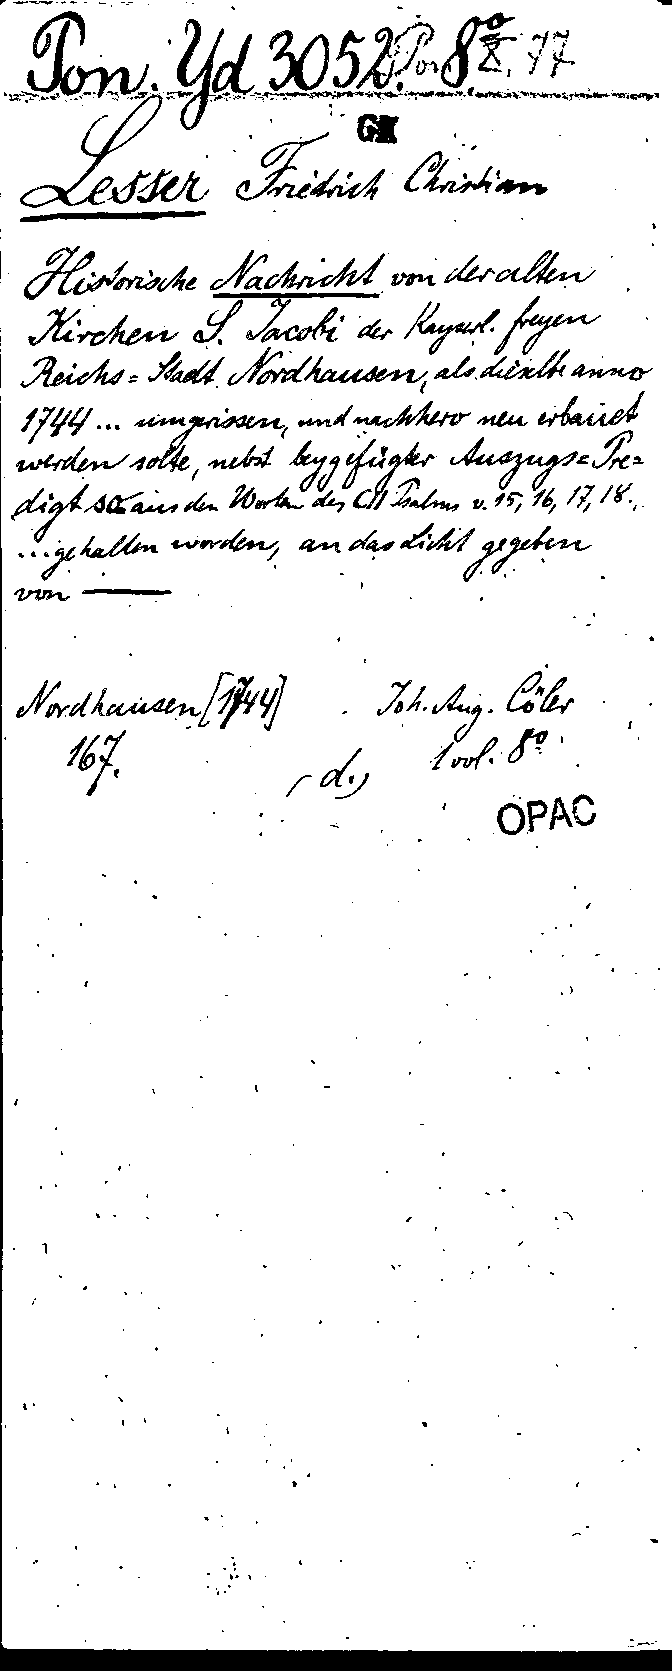 Pon. Yd 3052. Pon 8º X. 77
GK
Lesser Friedrich Christian
Historische Nachricht von der alten
Kirchen S. Jacobi der Kayserl. freyen
Reichs=Stadt Nordhausen, als dieselbe anno
1744 ... umgerissen, und nachhero neu erbauet
werden solte, nebst beygefügter Auszugs=Pre=
digt so aus den Worten des CII Psalms v. 15, 16, 17, 18.,
... gehalten worden, an das Licht gegeben
von ———
Nordhausen [1744] Joh. Aug. Cöler
167. 1 vol. 8º
d.
OPAC